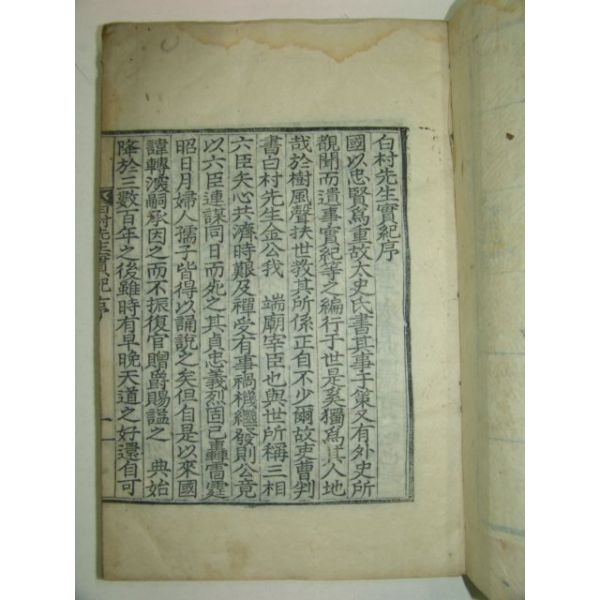 白村先生實紀序
國以忠賢爲重故太史氏書其事于策又有外史所
觀聞而遺事實紀等之編行于世是奚獨爲其人地
哉於樹風聲扶世敎其所係正自不少爾故吏曹判
書白村先生金公我 端廟宰臣也與世所稱三相
六臣矢心共濟時艱及禪受有事禍機繼發則公竟
以六臣連謀同日而死之其貞忠義烈固已轟雷霆
昭日月婦人孺子皆得以誦說之矣但自是以來國
諱轉深嗣承因之而不振復官贈爵賜謚之 典始
降於三數百年之後雖時有早晩天道之好還自可
白村先生實紀序 一